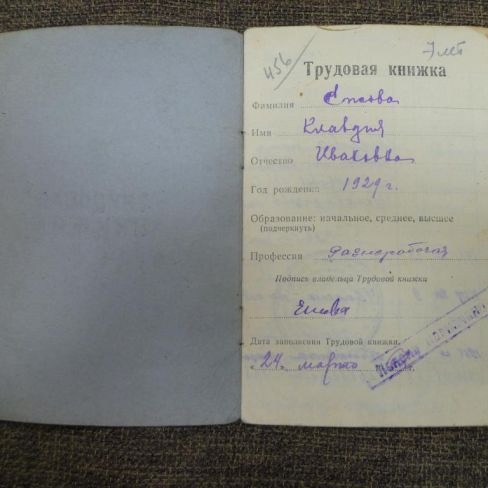 456
7 лет
Трудовая книжка
Фамилия
Имя Клавдия
Отчество Ивановна
Год рождения 1929 г.
Образование: начальное, среднее, высшее
(подчеркнуть)
Профессия разнорабочая
Подпись владельца Трудовой книжки
Дата заполнения Трудовой книжки
24. марта